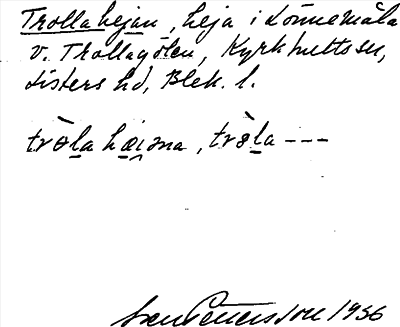 Trollahejan, heja i Lönnemåla
v. Trollagölen, Kyrkhults sn,
Listers hd, Blek. l.
tròla hæjona, tròla ---
Sven Petersson 1936